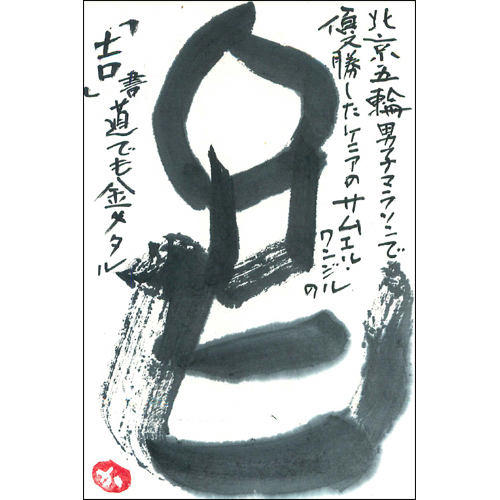 北京五輪男子マラソンで
優勝したケニアのサムエル・
ワンジルの
「吉」
書道でも金メタル